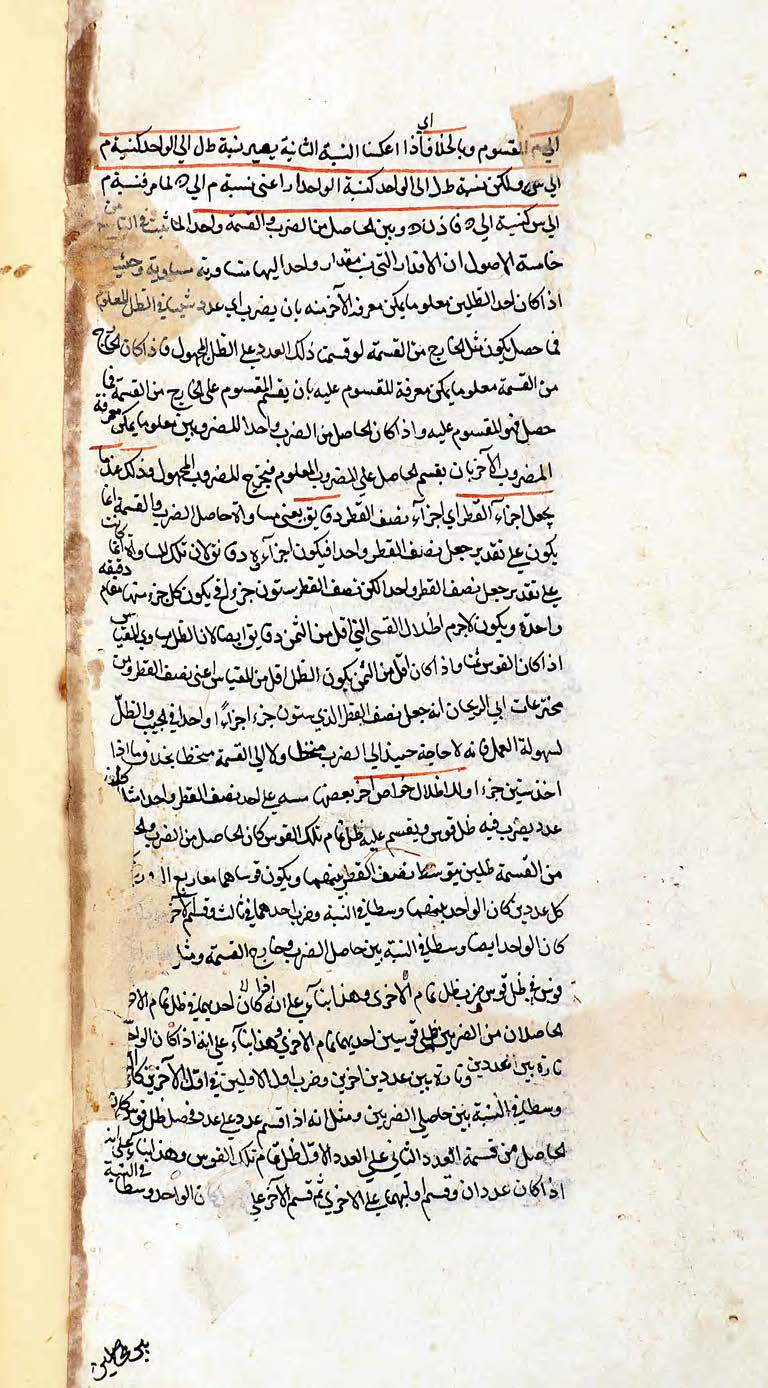 اي
الي م المقسوم وبالخلاف فاذا اعكسنا النسبة الثانية يصير نسبة ط ل الي الواحد كنسبة م
الي س ولكن نسبة ط ل الى الواحد كنسبة الواحد ا ر اعنى نسبة م الي ه لما مر فنسبة م
الي س كنسبة الي ه فاذن ه وبين الحاصل من الضرب والقسمة واحد لما ثبت في التاسع من
خامسة الاصول ان الاقدار التي نسب مقدار واحد اليها متساوية متساوية وحينئذ
اذا كان احد الظلين معلوما يمكن معرفة الآخر منه بان يضرب اي عدد شئنا في الظل المعلوم
فما حصل يكون مثل الخارج من القسمة لو قسمت ذلك العدد علي الظل المجهول فاذا كان الخارج
من القسمة معلوما يمكن معرفة المقسوم عليه بان يقسم المقسوم على الخارج من القسمة فما
حصل فهو المقسوم عليه واذا كان الحاصل من الضرب واحد المضروبين معلوما يمكن معرفة
المضروب الآخر بان يقسم الحاصل علي المضروب المعلوم فيخرج المضروب المجهول وذلك عند ما
يجعل اجزاء القطر اي اجزاء نصف القطر دقايق يعنى مساواة حاصل الضرب والقسمة انما
يكون علي تقدير جعل نصف القطر واحدا فيكون اجزاؤه دقايق لان تلك المساواة انما كانت
علي تقدير جعل نصف القطر واحدا لكن نصف القطر ستون جزءا فيكون كل جزء منها مقام دقيقه
واحدة ويكون لاجرم اظلال القسي التي اقل من الثمن دقايق ايضا لان الظل يساوي المقياس
اذا كان القوس ثمنا واذا كان اقل من الثمن يكون الظل اقل من المقياس اعنى نصف القطر ومن
مخترعات ابي الريحان انه جعل نصف القطر الذي ستون جزء اجزاءا واحدا في الجيب والظلّ
لسهولة العمل فانه لا حاجة حينئذ الي الضرب منحطا ولا الي القسمة منحطا بخلاف ما اذا
اخذ ستين جزءا وللاظلال خواص اخر بعضها مبنية علي اخذ نصف القطر واحدا مثلا كل
عدد يضرب فيه ظل قوس ويقسم عليه ظل تمام تلك القوس كان الحاصل من الضرب والخ
من القسمة ظلين يتوسط نصف القطر بينهما ويكون قوساهما معا ربع الدور
كل عددين كان الواحد بينهما وسطا في النسبة وضرب احدهما في ثالث وقسم الآخر
كان الواحد ايضا وسطا في النسبة بين حاصل الضرب وخارج القسمة ومثل
قوس في ظل قوس ضرب ظل تمام الأخرى وهذا بناء علي انه اذا كان احديهما في ظل تمام الاخر
الحاصلان من الضربين ظلي قوسين احديهما تمام الاخرى وهذا بناء علي انه اذا كان الواحد
تارة بين عددين وتارة بين عددين اخرين وضرب اول الاولين في اول الآخرين كان
وسطا في النسبة بين حاصلي الضربين ومثل انه اذا قسم عدد علي عدد فحصل ظل قوس كان
الحاصل من قسمة العدد الثاني علي العدد الاول ظل تمام تلك القوس وهذا بناء علي انه
اذا كان عددان وقسم اولهما علي الاخري ثم قسم الآخر علي كان الواحد وسطا في النسبة
بين حاصلي